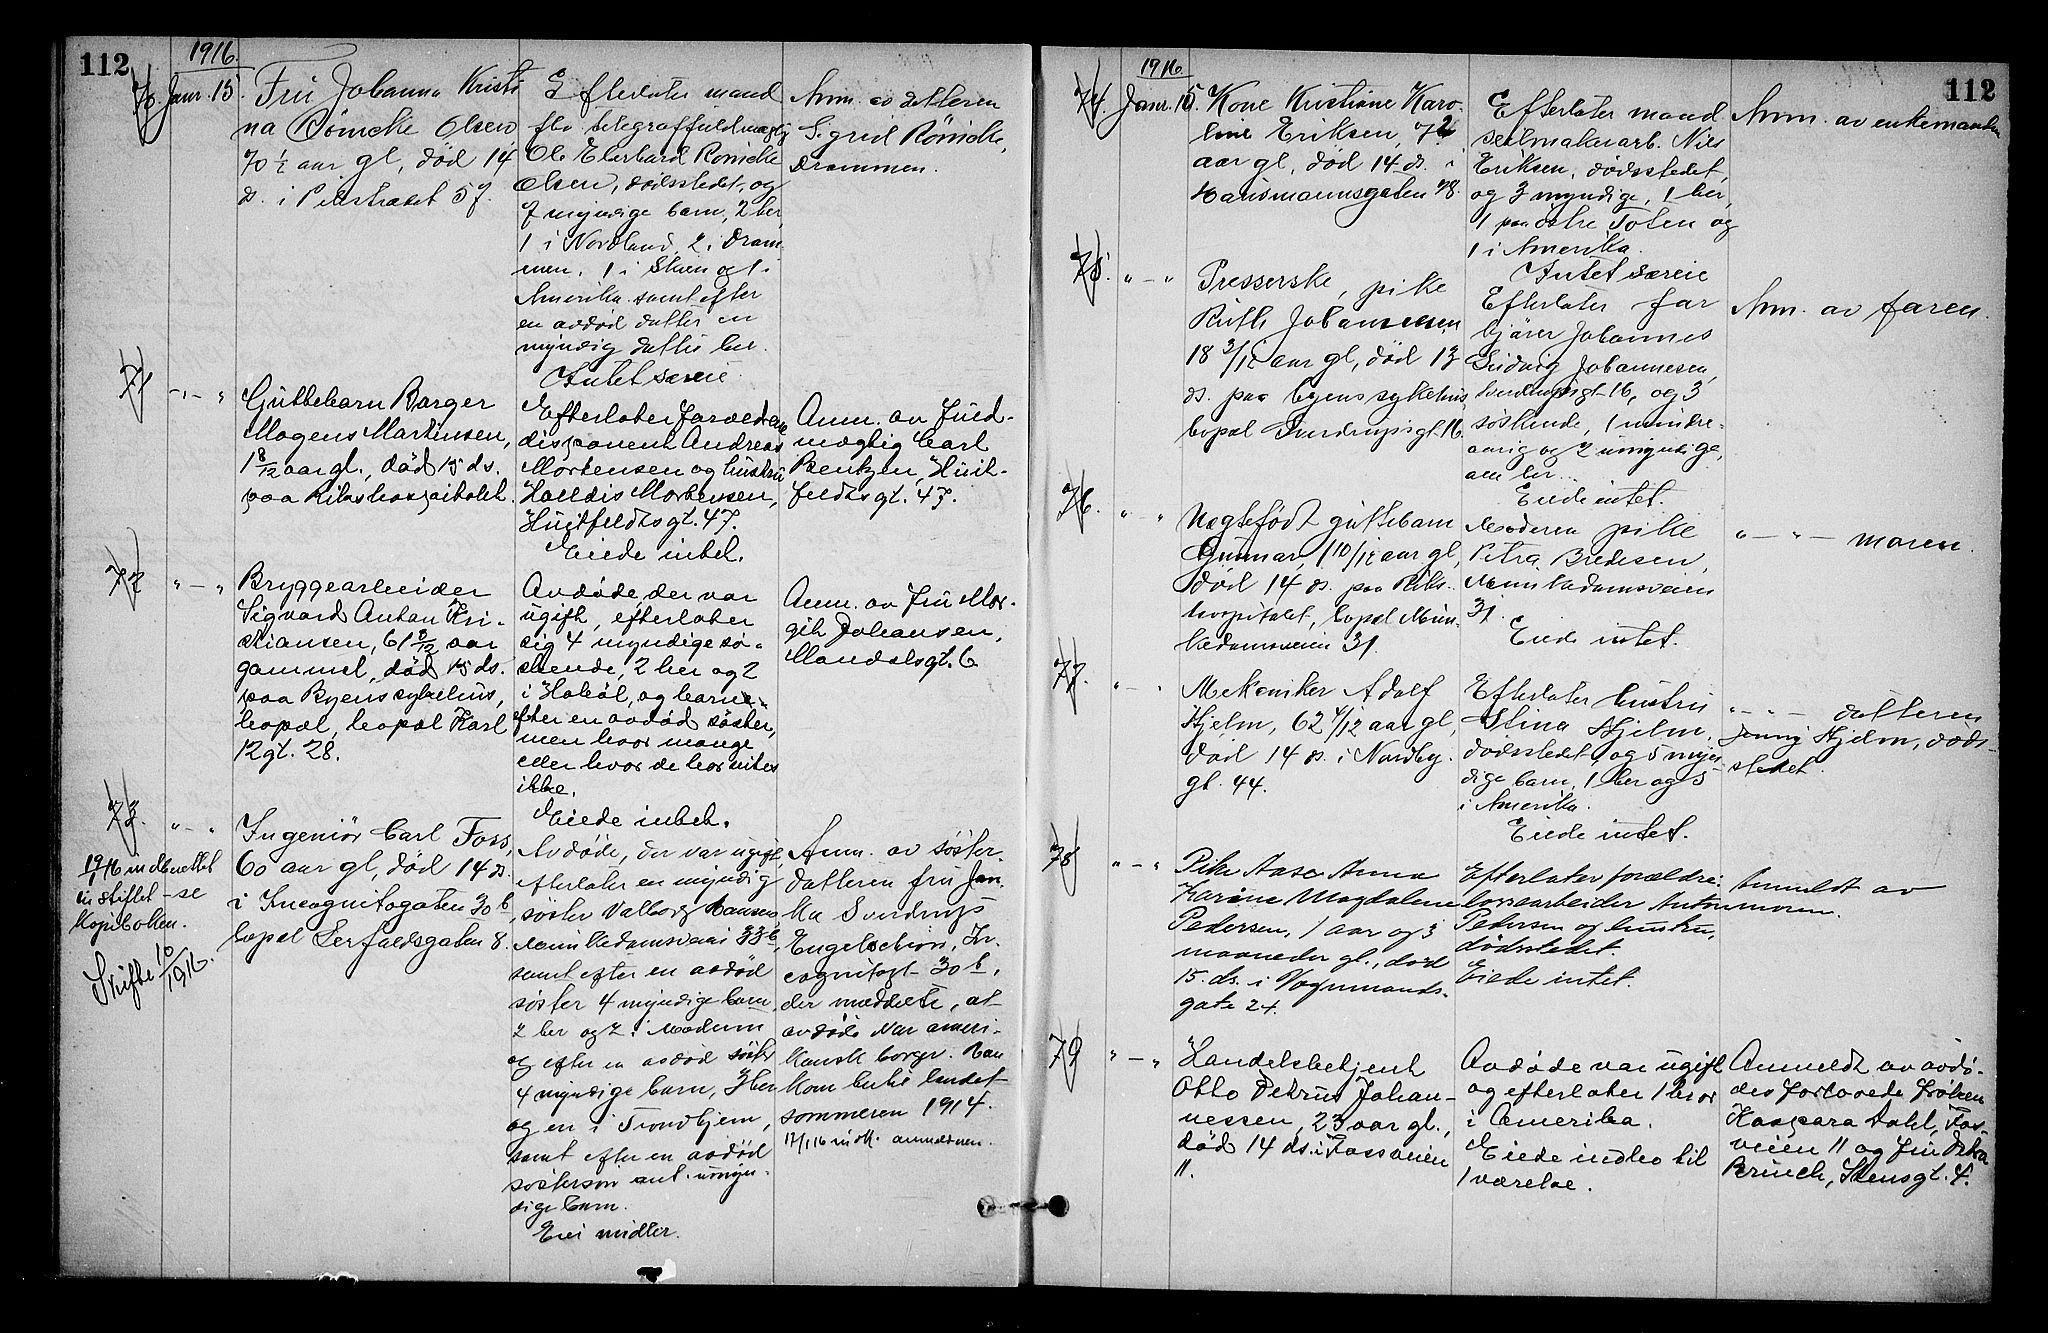 112
1916.
70 Janr. 15.
Fru Johanna Kristi
na Rönicke Olsen
70 1/2 aar gl, död 14
ds. i Pilestrædet 57.
Efterlater mand
fhv telegraffuldmægtig
Ole Eberhard Rönicke
Olsen, dødsstedet, og
7 myndige barn, 2 her
1 i Nordland, 2 i Dram-
men, 1 i Skien og 1 i
Amerika samt efter
en avdød datter en
myndig datter her.
Intet særeie
Anm. av datteren
Sigrid Rönicke,
Drammen.
71
" — "
Guttebarn Barger
Mogens Martinsen,
1 8/12 aar gl., død 15 ds.
paa Rikshospitalet.
Efterlater forældrene
disponent Andreas
Mortensen og hustru
Halldis Mortensen,
Huitfeldtsgt. 47.
Eiede intet.
Anm. av Fuld-
mægtig Carl
Bentzen, Huit-
feldtsgt. 47.
72
" — "
Bryggearbeider
Sigvard Anton Kri-
stiansen, 61 8/12 aar
gammel, død 15 ds.
paa Byens sykehus,
bopæl, bopæl Karl
12gt. 28.
Avdøde, der var
ugift, efterlater
sig 4 myndige sø-
skende, 2 her og 2
i Hobøl, og barn e-
fter en avdød søster,
men hvor mange
eller hvor de bor vites
ikke.
Eiede intet.
Anm. av Fru Mar-
git Johansen,
Mandalsgt. 6
73.
" — "
Ingeniör Carl Foss,
60 aar gl, död 14 ds.
i Incognitogaten 30 b
bopæl Seilfeldsgaten 8.
19/1 16 meddelt
Skiftet - se
Kopiboken.
Skifte 10/1916.
Avdøde, der var ugift,
efterlater en myndig
søster Valborg Hansen
Munkedamsveien 33 b,
samt efter en avdød
søster 4 myndige barn
2 her og 2 i Modum
og efter en avdød søster
4 myndige barn, 3 her
og en i Trondhjem,
samt efter en avdød
søstersøn ant. umyn-
dige barn.
Eier midler.
Anm. av søster-
datteren fru Jan-
ka Sverdrup
Engelschiön, In-
cognitogt 30 b,
der meddelte, at
avdøde var ameri-
kansk borger. Han
kom hertil landet
sommeren 1914.
17/1 16 medd. anmelderen.
112
1916
74. Janr. 15.
Kone Kristiane Karo-
line Eriksen, 72
aar gl, død 14 ds. i
Hausmannsgaten 28.
Efterlater mand
seilmakerarb. Nils
Eriksen, dødsstedet,
og 3 myndige, 1 her,
1 paa østre Toten og
1 i Amerika.
Intet særeie
Anm. av enkemanden
75.
" — "
Presserske, pike
Ruth Johannesen
18 3/12 aar gl, død 13
ds. paa byens sykehus,
bopæl Sverdrupsgt 16.
Efterlater far
kjører Johannes
Ludvig Johannesen,
Sverdrupsgt 16, og 3
søskende, 1 mindre-
aarig og 2 umyndige,
alle her.
Eiede intet
Anm. av faren.
76.
" — "
Uegtefödt guttebarn
Gunnar, 1 10/12 aar gl,
død 14 ds. paa Riks-
hospitalet, bopæl Mun-
kedamsveien 31.
Moderen pike
Petra Bredesen,
Munkedamsveien
31.
Eiede intet.
" — " — moren.
77.
" — "
Mekaniker Adolf
Hjelm, 62 4/12 aar gl,
død 14 ds. i Nordby-
gt. 44.
Efterlater hustru
Stina Hjelm,
dødsstedet, og 5 myn-
dige barn, 1 her og 5
i Amerika.
Eiede intet.
" — " — datteren
Jenny Hjelm, døds-
stedet.
78
" — "
Pike Aase Anna
Karine Magdalene
Pedersen, 1 aar og 3
maaneder gl., død
15. ds. i Vognmands-
gate 24.
Efterlater forældre:
løsarbeider Anton
Pedersen og hustru,
dødsstedet.
Eiede intet.
Anmeldt av
moren.
79
" — "
Handelsbetjent
Otto Petrus Johan-
nessen, 23 aar gl.,
død 14 ds. i Fossveien
11.
Avdøde var ugift
og efterlater 1 bror
i Amerika.
Eiede indbo til
1 værelse.
Anmeldt av avdø-
des forlovede Frøken
Kaspara Dahl, Fos-
veien 11 og Fru Petra
Bruich, Stensgt. 4.